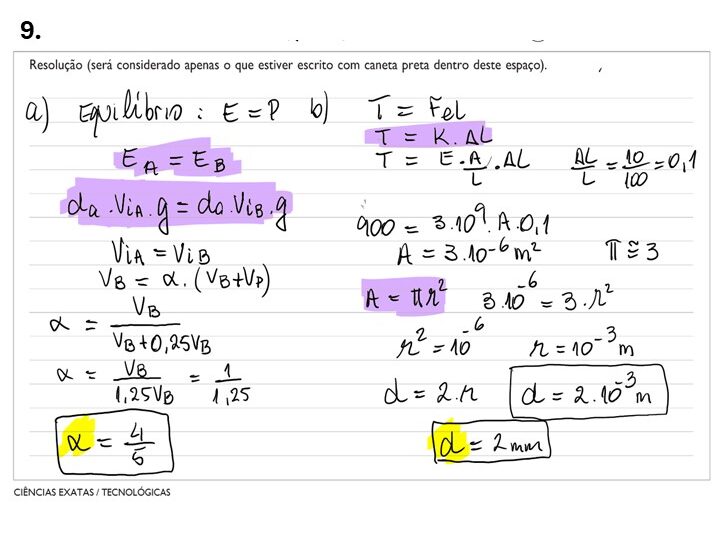 9.
Resolução (será considerado apenas o que estiver escrito com caneta preta dentro deste espaço).
a) Equilíbrio : E = P
E_A = E_B
da . ViA . g = da . ViB . g
ViA = ViB
VB = α . (VB + VP)
α = VB / VB + 0,25VB
α = VB / 1,25VB = 1 / 1,25
α = 4/5
b) T = Fel
T = K . ΔL
T = E . A/L . ΔL ΔL/L = 10/100 = 0,1
900 = 3.10⁹. A . 0,1
A = 3.10⁻⁶ m² π ≅ 3
A = πr² 3.10⁻⁶ = 3 . r²
r² = 10⁻⁶ r = 10⁻³ m
d = 2 . r d = 2 . 10⁻³ m
d = 2 mm
CIÊNCIAS EXATAS / TECNOLÓGICAS